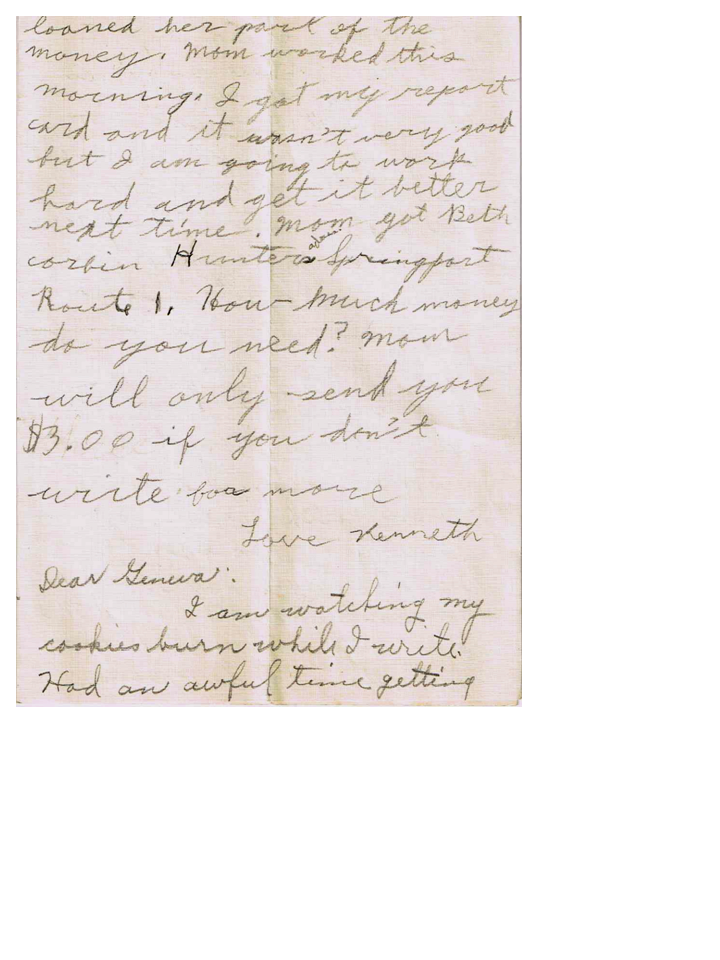 loaned her part of the
money. Mom worked this
morning. I got my report
card and it wasn't very good
but I am going to work
hard and get it better
next time. Mom got Beth
corbin Hunters Springport
Route 1. How much money
do you need? Mom
will only send you
$3.00 if you don't
write for more
Love Kenneth
Dear Geneva:
I am watching my
cookies burn while I write.
Had an awful time getting